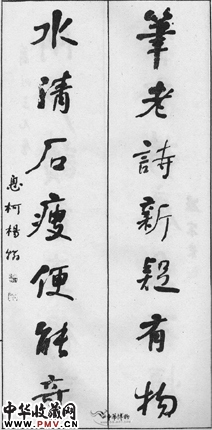 筆老詩新疑有物
水清石瘦便能奇
惠柯楊
中华收藏网
www.PMV.cn
中华博物